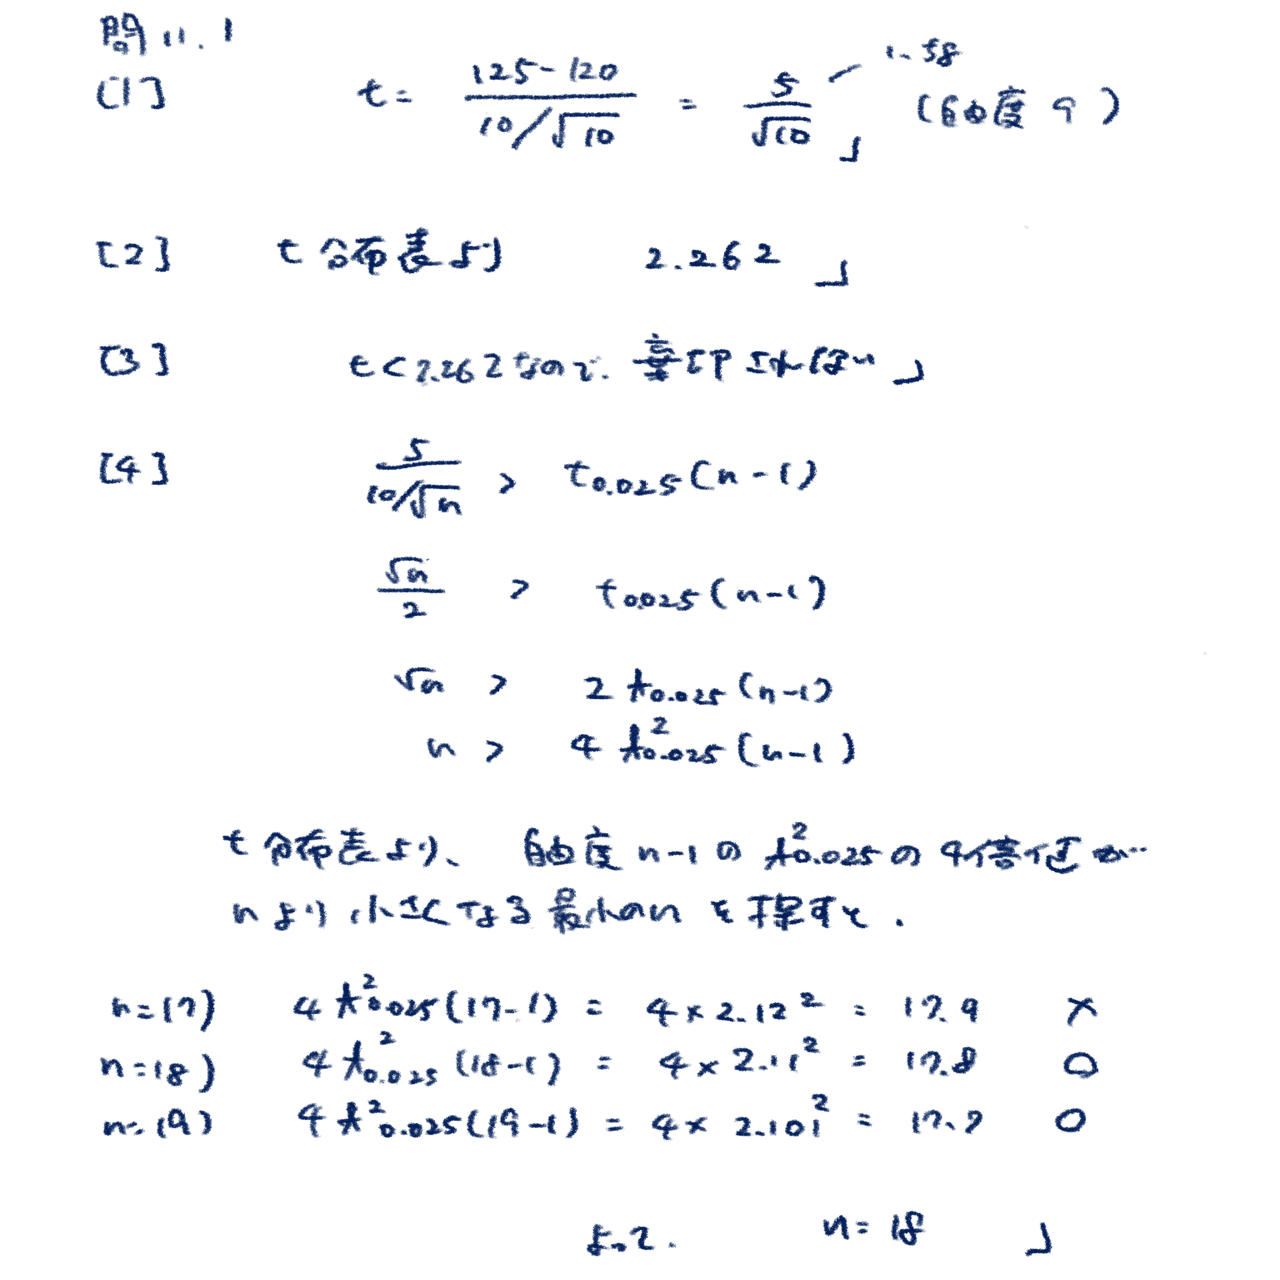 問11.1
[1] t = (125-120)/(10/√10) = 5/√10 」 1.58 (自由度 9)
[2] t分布表より 2.262 」
[3] t<2.262なので、棄却されない 」
[4] 5/(10/√n) > t0.025(n-1)
√n/2 > t0.025(n-1)
√n > 2 t0.025(n-1)
n > 4 t²0.025(n-1)
t分布表より、自由度 n-1 の t²0.025の4倍値が
nより小さくなる最小のnを探すと.
n=17) 4 t²0.025(17-1) = 4×2.12² = 17.9 ×
n=18) 4 t²0.025(18-1) = 4×2.11² = 17.8 ○
n=19) 4 t²0.025(19-1) = 4×2.101² = 17.7 ○
よって. n=18 」